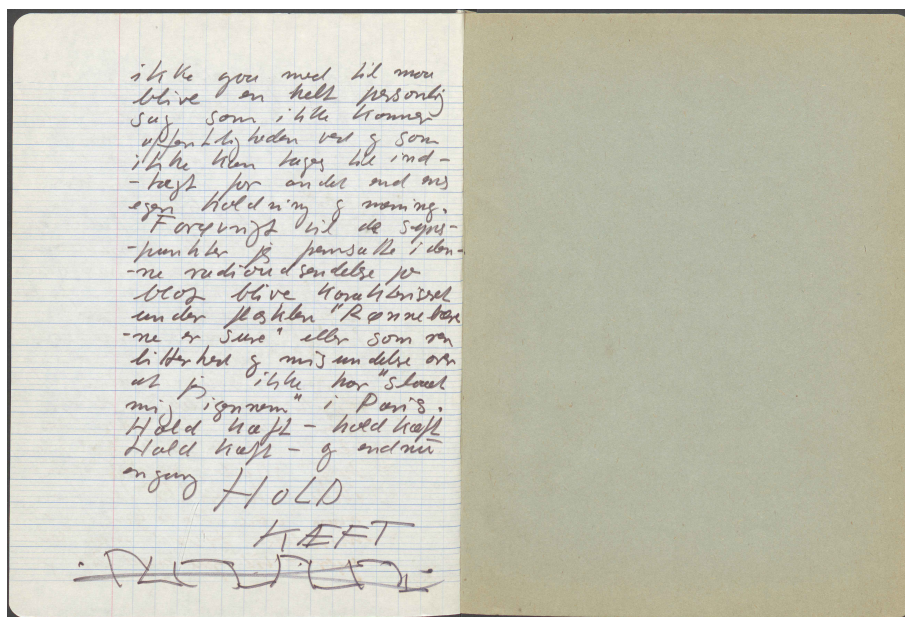 ikke gaa med til maa
blive en helt personlig
sag som ikke kommer
offentligheden ved og som
ikke kan tages til ind-
-tægt for andet end ens
egen holdning og mening.
Forøvrigt vil de syns-
-punkter jeg fremsatte i den-
-ne radioudsendelse jo
blot blive karakteriseret
under flosklen "Rønnebære
-ne er sure" eller som ren
bitterhed og misundelse over
at jeg ikke har "slaaet
mig igennem" i Paris.
Hold kæft – hold kæft
Hold kæft – og endnu
en gang HOLD
KÆFT